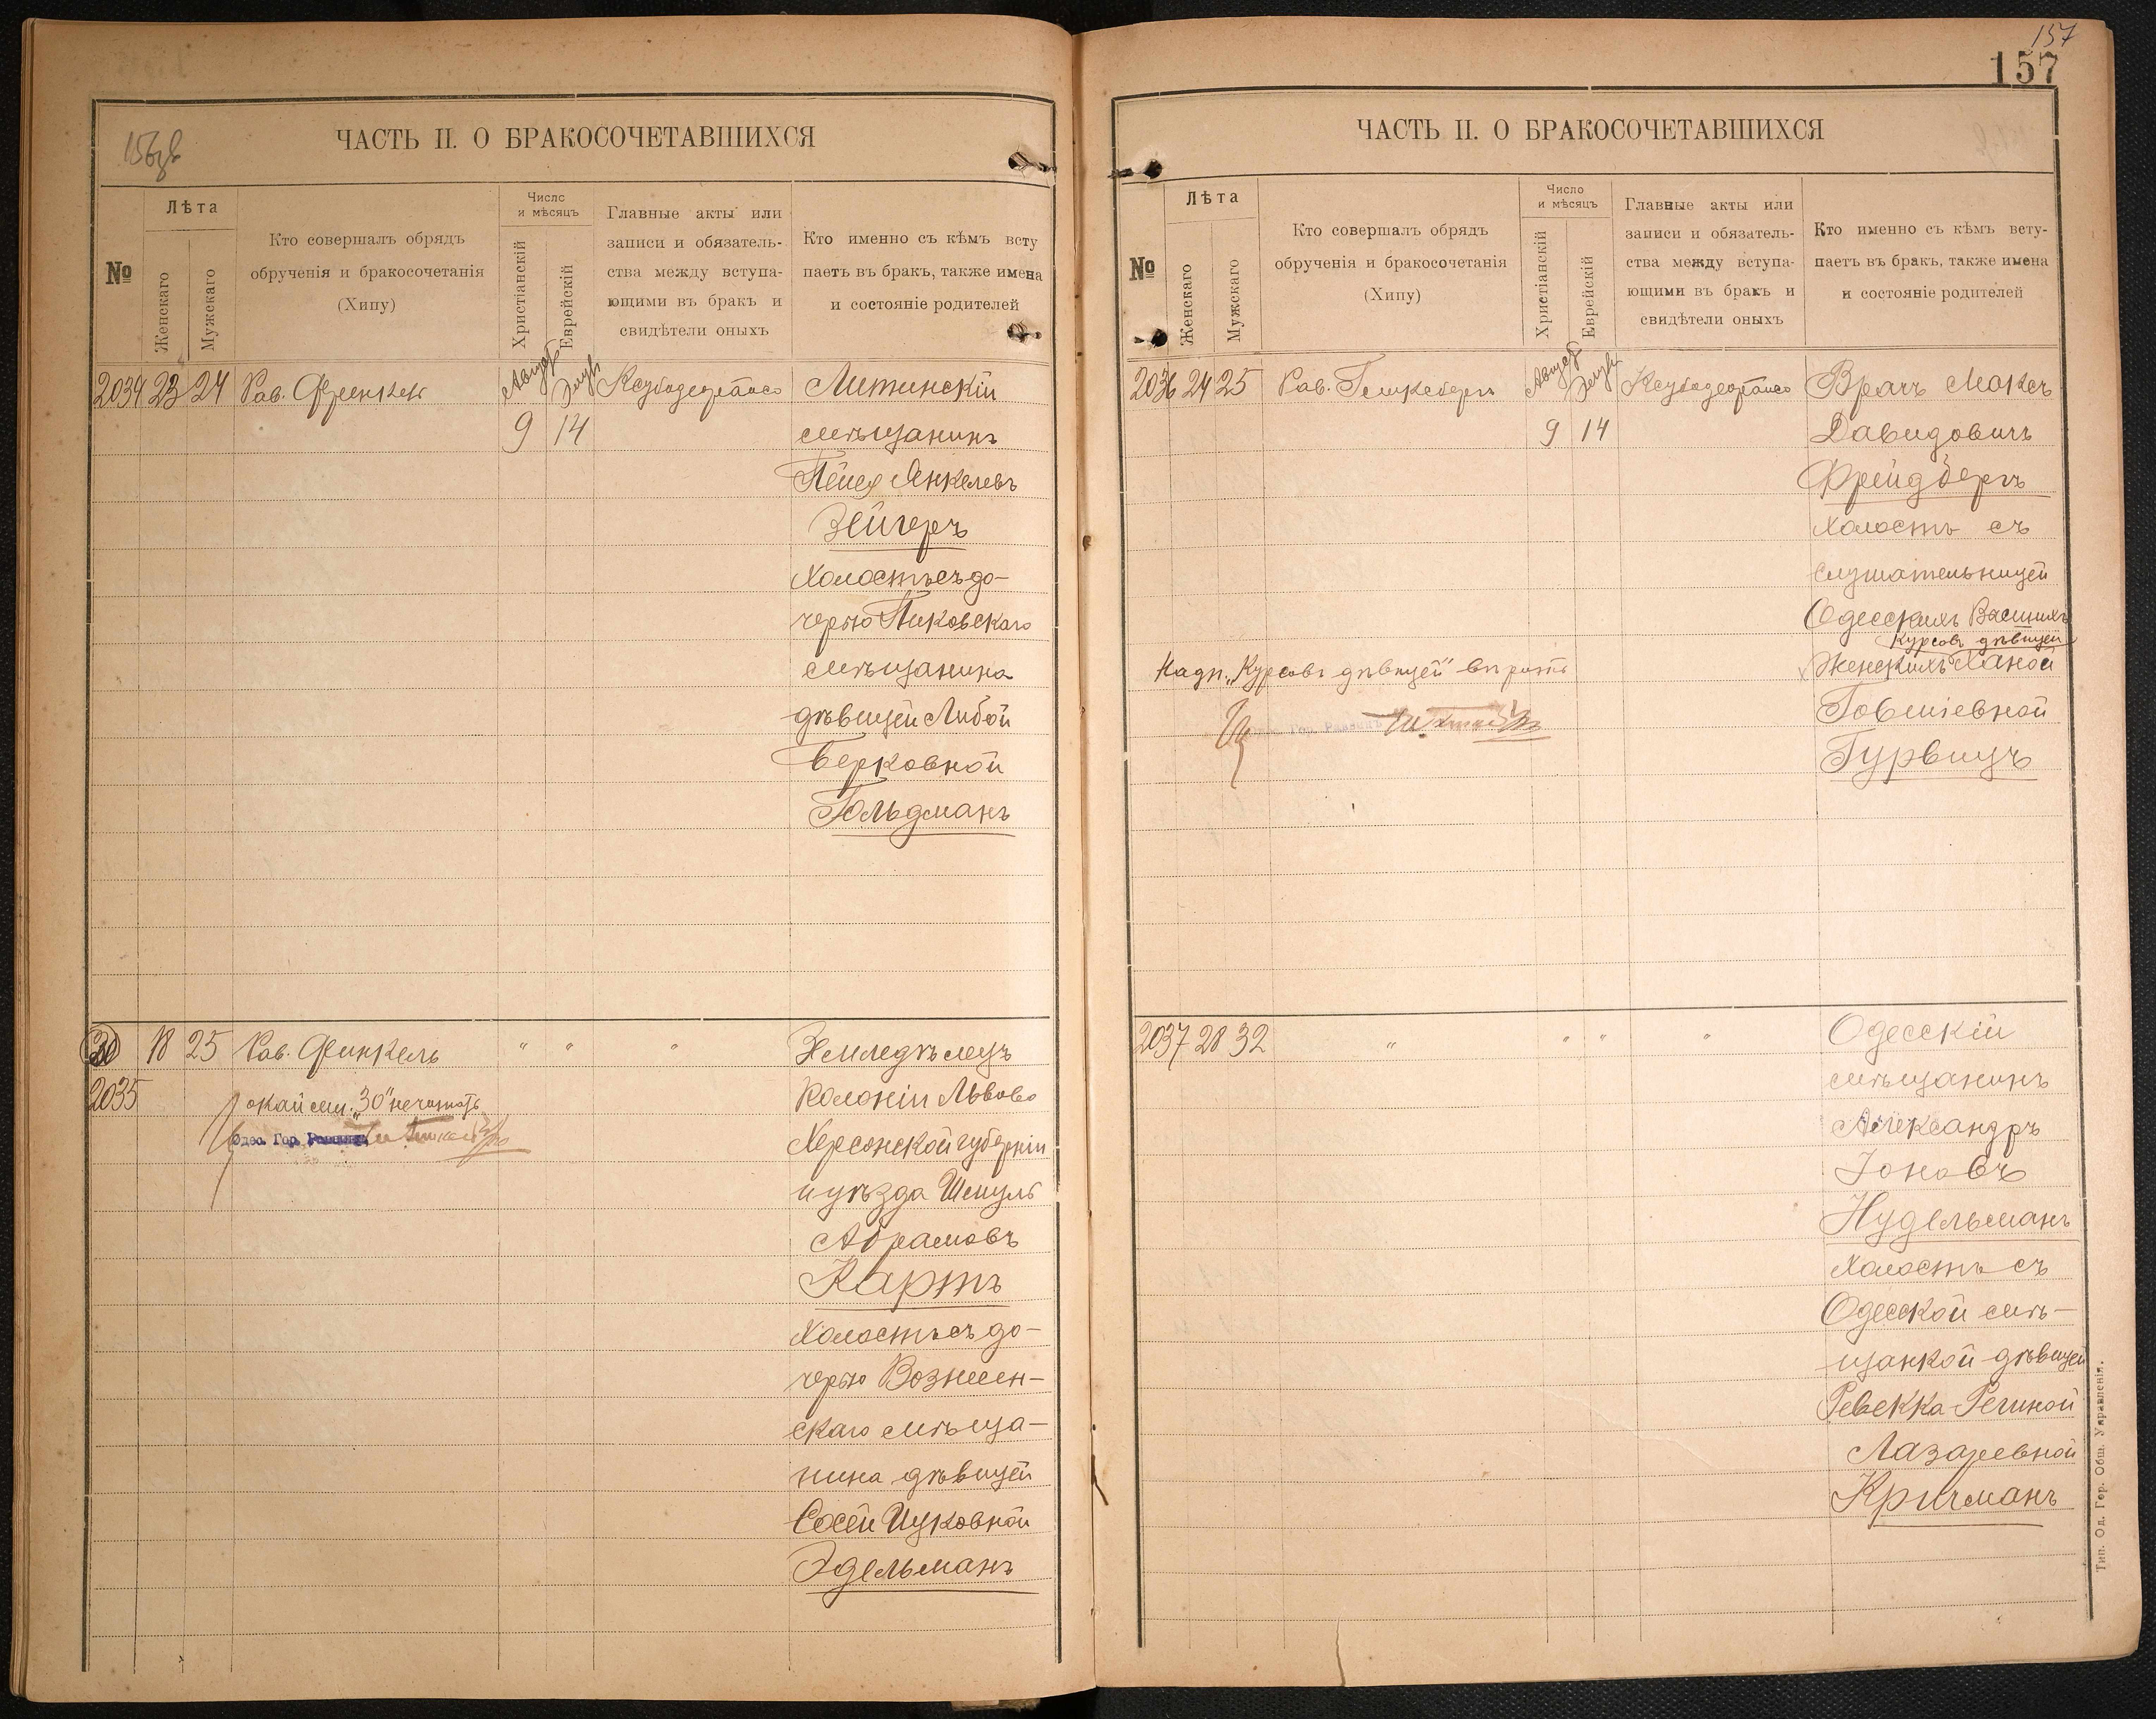 ЧАСТЬ II. О БРАКОСОЧЕТАВШИХСЯ
№
Лѣта
Женскаго
Мужскаго
Кто совершалъ обрядъ
обрученія и бракосочетанія
(Хипу)
Число
и мѣсяцъ
Христіанскій
Еврейскій
Главные акты или
записи и обязатель-
ства между вступа-
ющими въ бракъ и
свидѣтели оныхъ
Кто именно съ кѣмъ всту
паетъ въ бракъ, также имена
и состояніе родителей
2034 23 24 Рав. Френкель
9 14
Литинскій
мѣщанинъ
Пейся Янкелевъ
Зейгеръ
холостъ съ до-
черью Пиковскаго
мѣщанина
дѣвицей Либой
Берковной
Гольдманъ
18 25 Рав. Финкель " " " Земледѣлецъ
2035
"30" не читать
Одес. Гор. Раввинъ
Колоніи Львово
Херсонской губерніи
и уѣзда Шмуль
Абрамовъ
Картъ
холостъ съ до-
черью Вознесен-
скаго мѣща-
нина дѣвицей
Сосей Ицковной
Эдельманъ
157
157
ЧАСТЬ II. О БРАКОСОЧЕТАВШИХСЯ
№
Лѣта
Женскаго
Мужскаго
Кто совершалъ обрядъ
обрученія и бракосочетанія
(Хипу)
Число
и мѣсяцъ
Христіанскій
Еврейскій
Главные акты или
записи и обязатель-
ства между вступа-
ющими въ бракъ и
свидѣтели оныхъ
Кто именно съ кѣмъ всту-
паетъ въ бракъ, также имена
и состояніе родителей
2036 24 25 Рав.
9 14
Врачъ Максъ
Давидовичъ
Фрейдбергъ
холостъ съ
слушательницей
Одесскихъ Высшихъ
Курсовъ дѣвицей
Женскихъ Ханой
Надп. „Курсовъ дѣвицей" вѣрить
Гор. Раввинъ
Товшіевной
Гурвицъ
2037 28 32 " " " " Одесскій
мѣщанинъ
Александръ
Іоновъ
Нудельманъ
холостъ съ
Одесской мѣ-
щанкой дѣвицей
Ревекка-Региной
Лазаревной
Кричманъ
Тип. Од. Гор. Общ. Управленія.